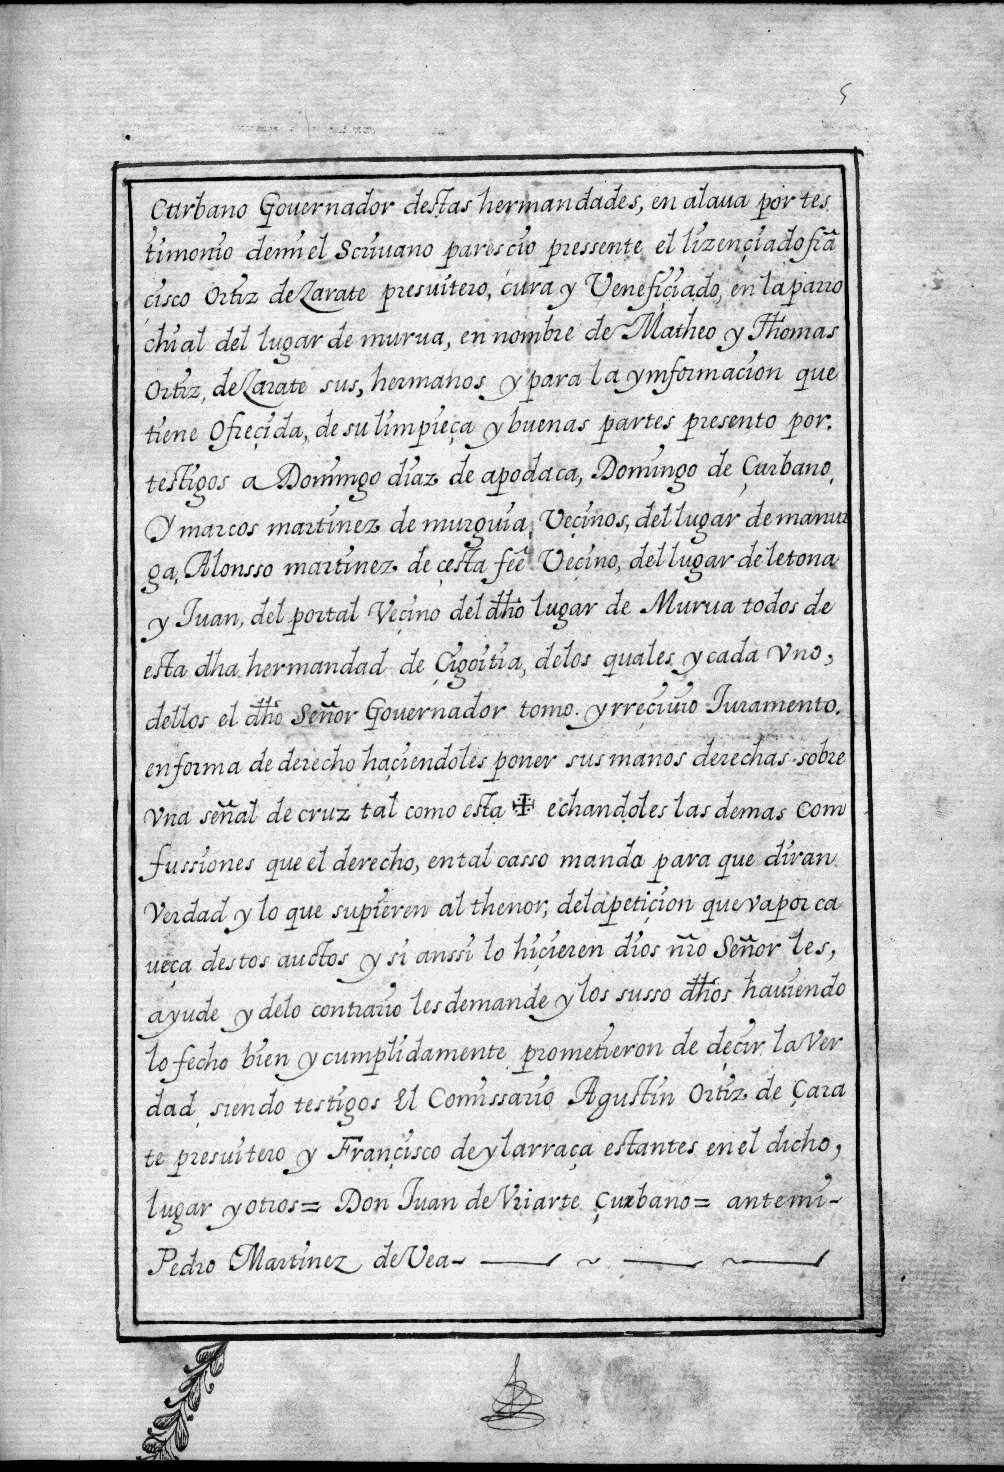 5
Curbano Gouernador destas hermandades, en alaua por tes
timonio demi el Scriuano parescio pressente el lizençiado frã
cisco Ortiz de Zarate presuitero, cura y Venefiçiado, en la parro
chial del lugar de murua, en nombre de Matheo y Thomas
Ortiz, de Zarate sus, hermanos y para la ymformacion que
tiene Ofreçida, de su limpieça y buenas partes presento por.
testigos a Domingo diaz de apodaca, Domingo de Çurbano,
Y marcos martinez de murguia, Veçinos, del lugar de manur
ga, Alonsso martinez de çesta feê Veçino, del lugar de letona
y Iuan, del portal Veçino del dħo lugar de Murua todos de
esta dha hermandad de Çigoitia, delos quales y cada vno,
dellos el dħo Señor Gouernador tomo. y rreçiuio Iuramento.
en forma de derecho haçiendoles poner sus manos derechas sobre
vna señal de cruz tal como esta ✠ echandoles las demas com
fussiones que el derecho, en tal casso manda para que diran
Verdad y lo que supieren al thenor, dela petiçion que va por ca
ueça destos auctos y si anssi lo hiçieren dios nr̃o Señor les,
ayude y delo contrario les demande y los susso dħos hauiendo
lo fecho bien y cumplidamente prometieron de deçir la Ver
dad siendo testigos El Comissario Agustin Ortiz de Çara
te presuitero y Françisco de ylarraça estantes en el dicho,
lugar y otros= Don Iuan de Vriarte Çurbano= ante mi-
Pedro Martinez de Vea-